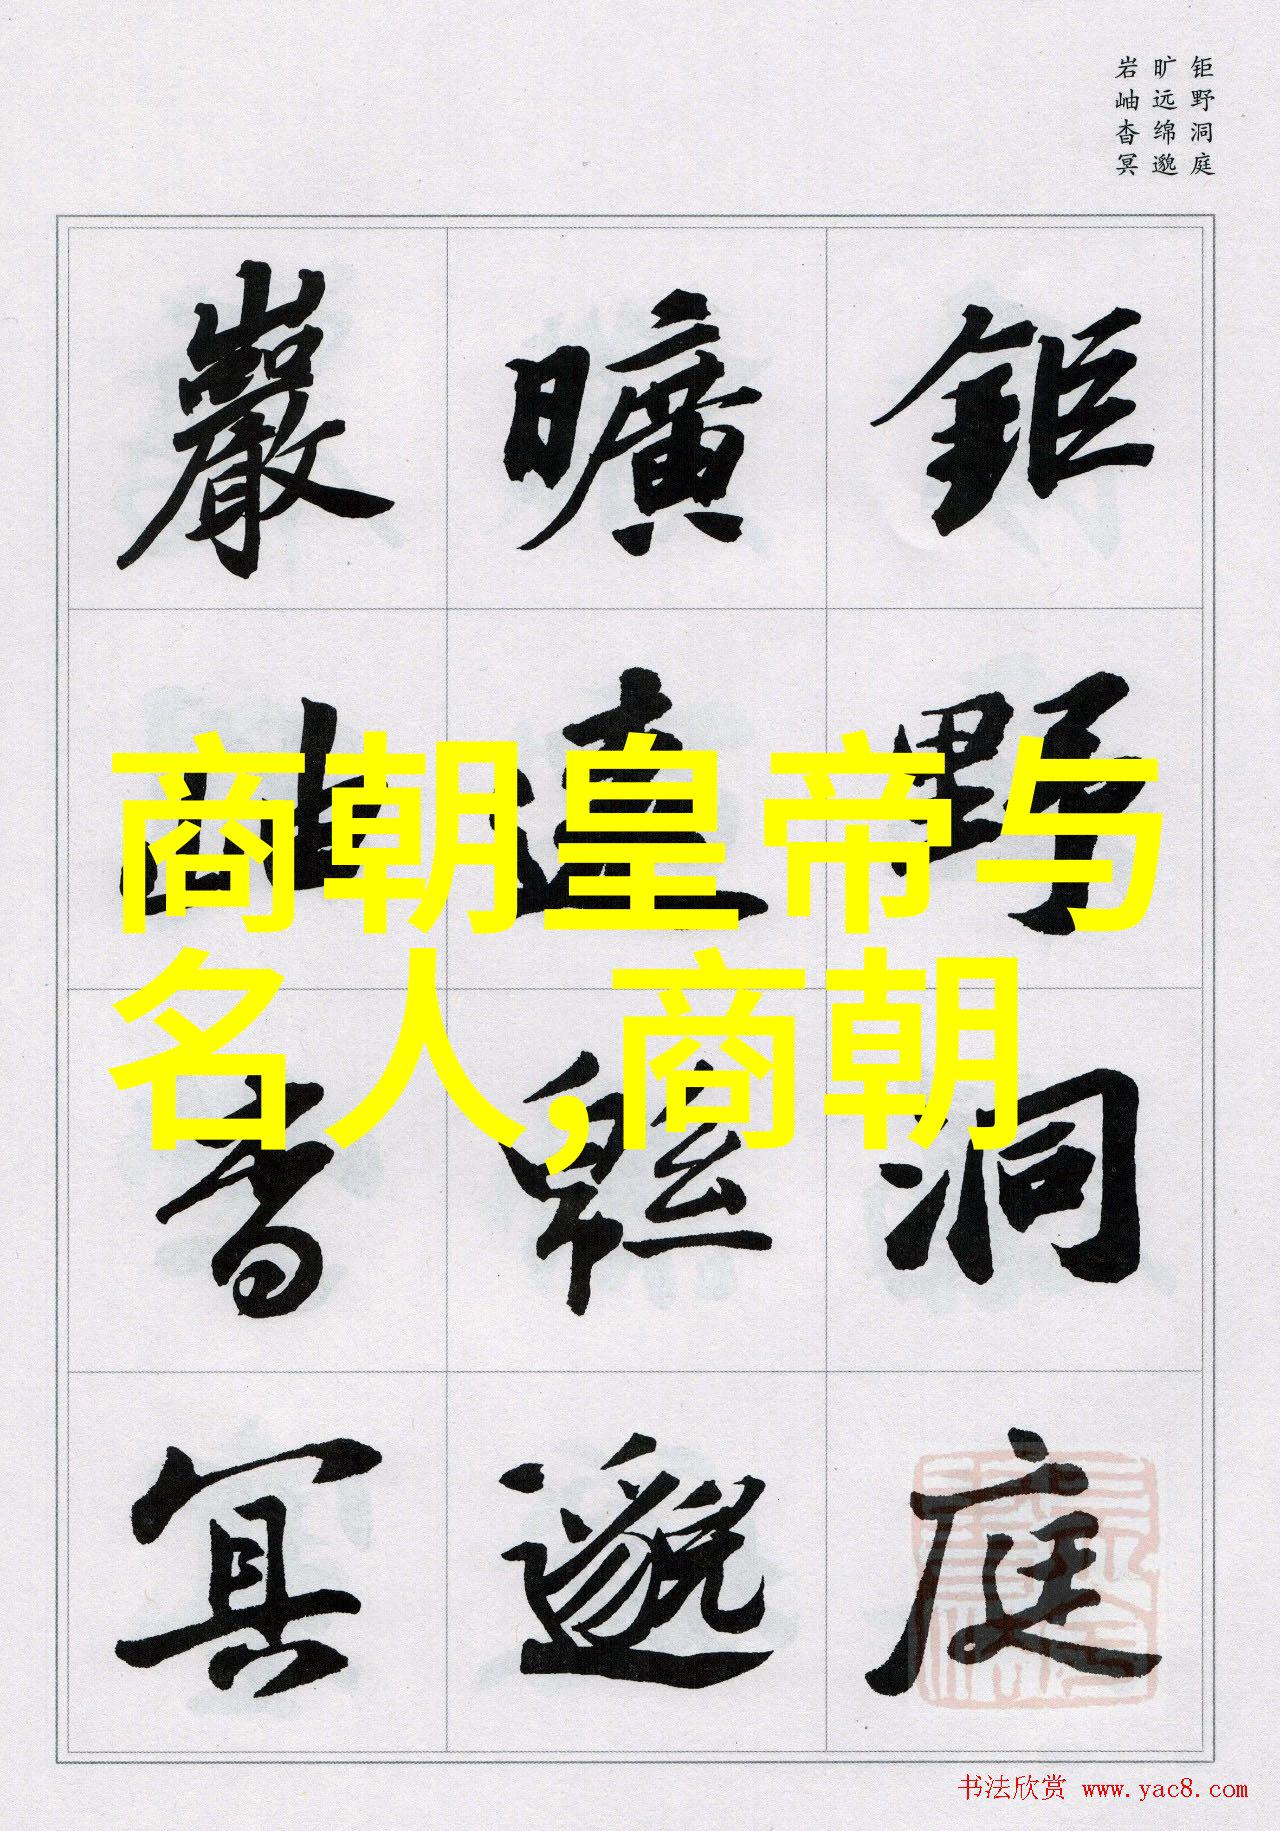 钜野洞庭
旷远绵邈
岩岫杳冥
鉅野洞庭
曠遠緜邈
巖岫杳冥
商朝皇帝与
名人,商朝
书法欣赏 www.yac8.com